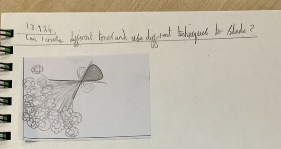 13.9.24.
Can I create different tones and use different techniques to shade?